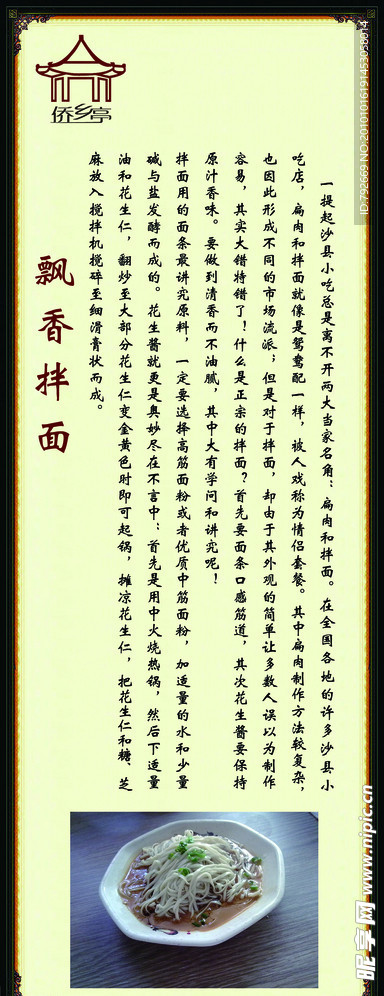 侨乡亭
飘香拌面
一提起沙县小吃总是离不开两大当家名角：扁肉和拌面。在全国各地的许多沙县小
吃店，扁肉和拌面就像是鸳鸯配一样，被人戏称为情侣套餐。其中扁肉制作方法较复杂，
也因此形成不同的市场流派；但是对于拌面，却由于其外观的简单让多数人误以为制作
容易，其实大错特错了！什么是正宗的拌面？首先要面条口感筋道，其次花生酱要保持
原汁香味。要做到清香而不油腻，其中大有学问和讲究呢！
拌面用的面条最讲究原料，一定要选择高筋面粉或者优质中筋面粉，加适量的水和少量
碱与盐发酵而成的。花生酱就更是奥妙尽在不言中：首先是用中火烧热锅，然后下适量
油和花生仁，翻炒至大部分花生仁变金黄色时即可起锅，摊凉花生仁，把花生仁和糖、芝
麻放入搅拌机搅碎至细滑膏状而成。
ID:792669 NO:20101016191453058014
昵享网 www.nipic.cn